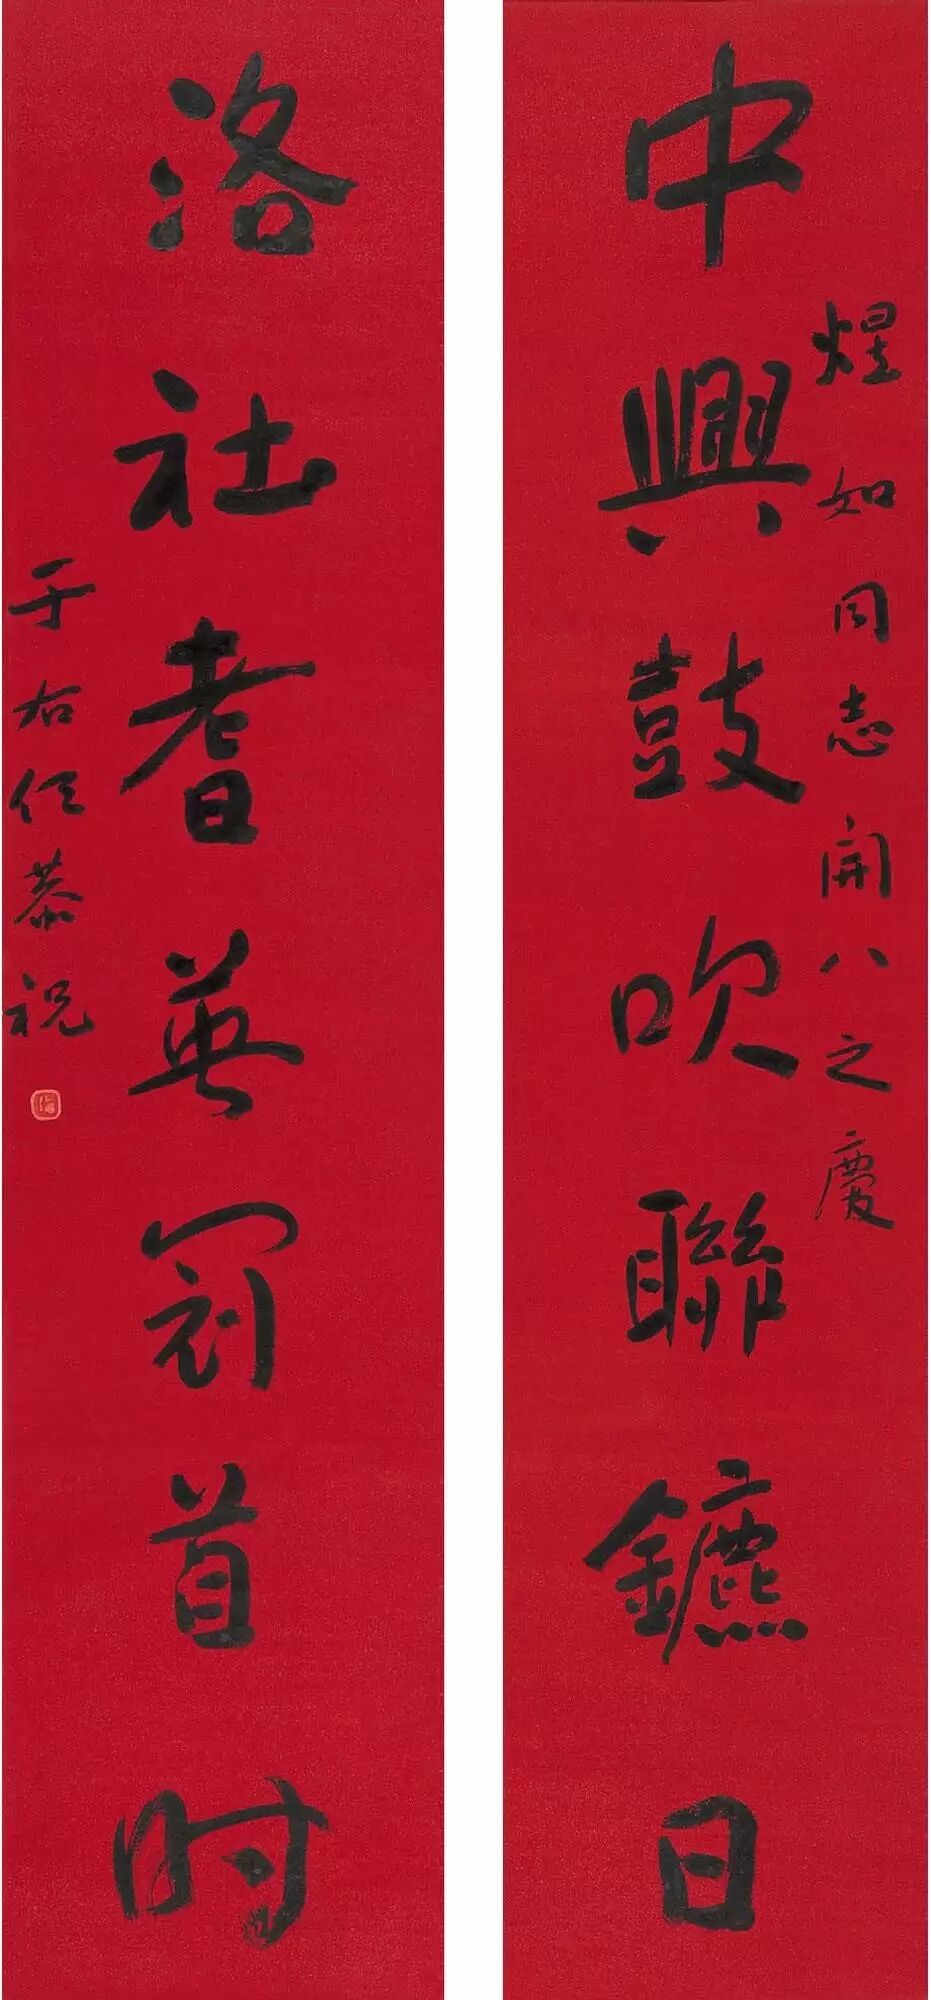 煜如同志開八之慶
中興鼓吹聯鑣日
洛社耆英冠首时
于右任恭祝